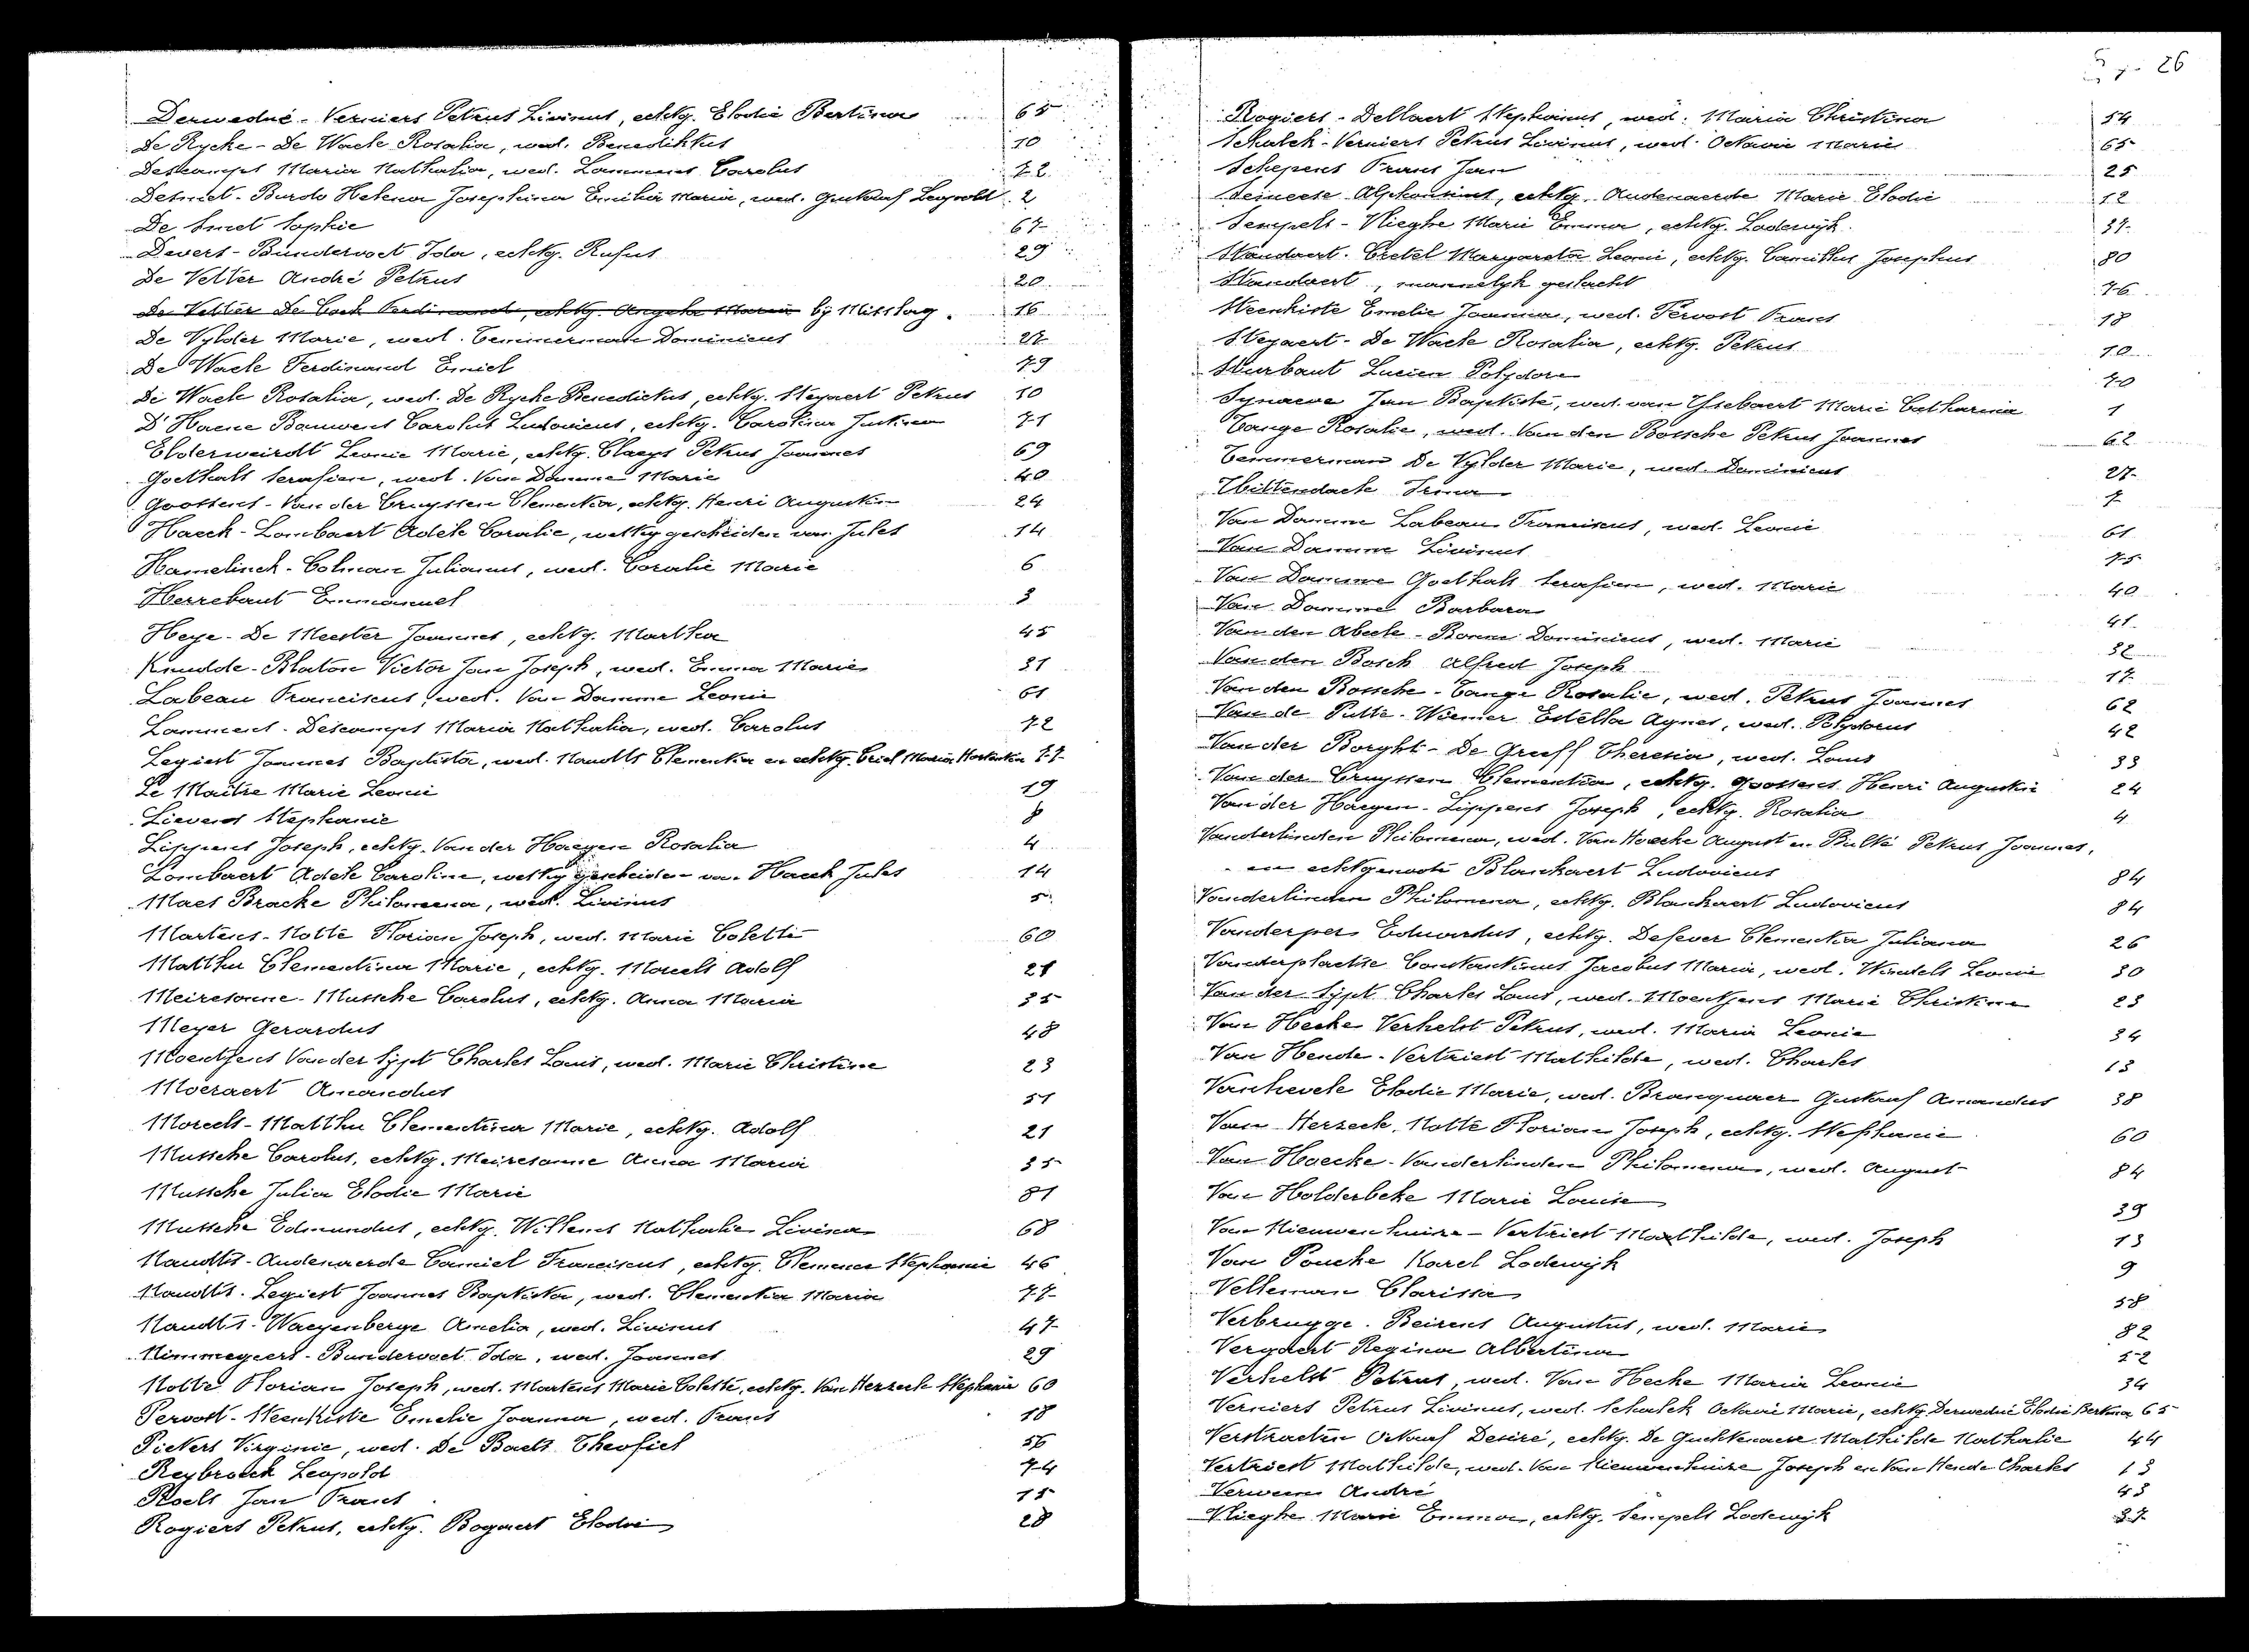 Derwedué - Verniers Petrus Livinus, echtg. Elodie Bertina 65
De Rycke - De Waele Rosalia, wed. Benediktus 10
Descamps Maria Nathalia, wed. Lammens Carolus 72
Desmet - Burdo Helena Josephina Emilia Maria, wed. Gustaaf Leopold 2
De Smet Sophie 67
Devers - Bundervoet Ida, echtg. Rufus 29
De Vetter André Petrus 20
De Vetter De Cock Ferdinand, echtg. Angela Maria bij Misslag. 16
De Vylder Marie, wed. Temmerman Dominicus 27
De Waele Ferdinand Emiel 79
De Waele Rosalia, wed. De Rycke Benedictus, echtg. Steyaert Petrus 10
D'Haene Bauwens Carolus Ludovicus, echtg. Carolina Justina 71
Elderweirdt Leonie Marie, echtg. Claeys Petrus Joannes 69
Goethals Serafien, wed. Van Damme Marie 40
Goossens - Van der Cruyssen Clementia, echtg. Henri Augustin 24
Haeck - Lombaert Adele Coralie, wettig gescheiden van Jules 14
Hamelinck - Colman Julianus, wed. Coralie Marie 6
Herrebaut Emmanuel 3
Heye - De Meester Joannes, echtg. Martha 45
Knudde - Blaton Victor Jan Joseph, wed. Emma Marie 31
Labeau Franciscus, wed. Van Damme Leonie 61
Lammens - Descamps Maria Nathalia, wed. Carolus 72
Legiest Joannes Baptista, wed. Naudts Clementia en echtg. Criel Maria 77
Le Maitre Marie Leonie 19
Lievens Stephanie 8
Lippens Joseph, echtg. Van der Haegen Rosalia 4
Lombaert Adele Caroline, wettig gescheiden van Haeck Jules 14
Maes Bracke Philomena, wed. Livinus 5
Martens - Notte Florian Joseph, wed. Marie Colette 60
Matthu Clementina Marie, echtg. Moreels Adolf 21
Meiresonne - Mussche Carolus, echtg. Anna Maria 35
Meyer Gerardus 48
Moentjens Van der Sypt Charles Louis, wed. Marie Christine 23
Moeraert Amandus 51
Moreels - Matthu Clementina Marie, echtg. Adolf 21
Mussche Carolus, echtg. Meiresonne Anna Maria 35
Mussche Julia Elodie Marie 81
Mussche Edmundus, echtg. Willems Nathalie Livina 68
Naudts - Audenaerde Camiel Franciscus, echtg. Clemence Stephanie 46
Naudts - Legiest Joannes Baptista, wed. Clementia Maria 77
Naudts - Waegenberge Amelia, wed. Livinus 47
Nimmegeers - Bundervoet Ida, wed. Joannes 29
Notte Florian Joseph, wed. Martens Marie Colette, echtg. Van Herzeele Stephanie 60
Pervost - Steenkiste Emelie Joanna, wed. Frans 18
Piekers Virginie, wed. De Baets Theofiel 56
Reybroeck Leopold 74
Roels Jan Frans 15
Rogiers Petrus, echtg. Bogaert Elodie 28
26
Rogiers - Dellaert Stephanus, wed. Maria Christina 54
Schalck - Verniers Petrus Livinus, wed. Octavie Marie 65
Schepens Frans Jan 25
Seineese Alphonsius, echtg. Audenaerde Marie Elodie 12
Sempels - Vlieghe Marie Emma, echtg. Lodewijk 37
Standaert - Cretel Margareta Leonie, echtg. Camillus Josephus 80
Standaert, mannelijk geslacht 76
Steenkiste Emelie Joanna, wed. Pervost Frans 18
Steyaert - De Waele Rosalia, echtg. Petrus 10
Sturbaut Lucien Polydore 70
Synaeve Jan Baptiste, wed. van Ysebaert Marie Catharina 1
Tange Rosalie, wed. Van den Bossche Petrus Joannes 62
Temmerman De Vylder Marie, wed. Dominicus 27
Uittendaele Irma 7
Van Damme Labeau Franciscus, wed. Leonie 61
Van Damme Livinus 75
Van Damme Goethals Serafien, wed. Marie 40
Van Damme Barbara 41
Van den Abeele - Bonne Dominicus, wed. Marie 32
Van den Bosch Alfred Joseph 17
Van den Bossche - Tange Rosalie, wed. Petrus Joannes 62
Van de Putte - Wiemer Estella Agnes, wed. Polydorus 42
Van der Borght - De Graeff Theresia, wed. Louis 33
Van der Cruyssen Clementia, echtg. Goossens Henri Augustin 24
Van der Haegen - Lippens Joseph, echtg. Rosalia 4
Vanderlinden Philomena, wed. Van Hoecke August en Bulté Petrus Joannes,
en echtgenoote Blanckaert Ludovicus 84
Vanderlinden Philomena, echtg. Blanckaert Ludovicus 84
Vanderper Eduardus, echtg. Defever Clementia Juliana 26
Vanderplaetse Constantinus Jacobus Maria, wed. Windels Leonie 30
Van der Sypt Charles Louis, wed. Moentjens Marie Christine 23
Van Hecke Verhelst Petrus, wed. Maria Leonie 34
Van Hende - Vertriest Mathilde, wed. Charles 13
Vanhevele Elodie Marie, wed. Brancquaer Gustaaf Amandus 38
Van Herzeele, Notte Florian Joseph, echtg. Stephanie 60
Van Hoecke - Vanderlinden Philomena, wed. August 84
Van Holderbeke Marie Louise 39
Van Nieuwenhuize - Vertriest Mathilde, wed. Joseph 13
Van Poucke Karel Lodewijk 9
Velleman Clarissa 58
Verbrugge - Beirens Augustus, wed. Marie 82
Vergaert Regina Albertina 52
Verhelst Petrus, wed. Van Hecke Maria Leonie 34
Verniers Petrus Livinus, wed. Schalck Octavie Marie, echtg. Derwedué Elodie Bertina 65
Verstraeten Octaaf Desiré, echtg. De Guchtenaere Mathilde Nathalie 44
Vertriest Mathilde, wed. Van Nieuwenhuize Joseph en Van Hende Charles 13
Verween André 43
Vlieghe Marie Emma, echtg. Sempels Lodewijk 37